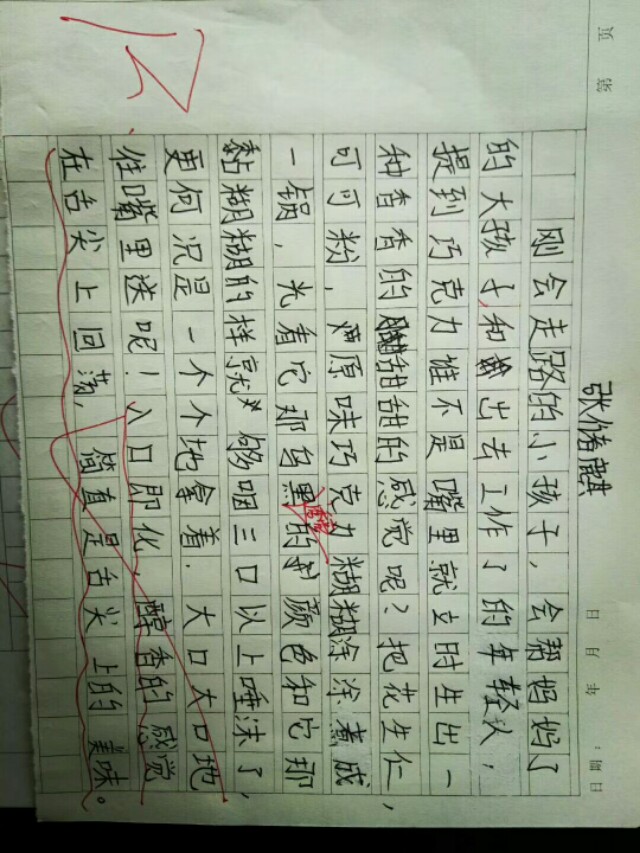 张倚麒
刚会走路的小孩子，会帮妈妈了
的大孩子，和出去工作了的年轻人，
提到巧克力谁不是嘴里就立时生出一
种香香的甜甜的感觉呢？把花生仁，
可可粉，原味巧克力糊糊涂涂煮成
一锅，光看它那乌黑的颜色和它那
黏糊糊的样就够咽三口以上唾沫了，
更何况是一个个地拿着．大口大口地
往嘴里送呢！入口即化，醇香的感觉
在舌尖上回荡，简直是舌尖上的美味。